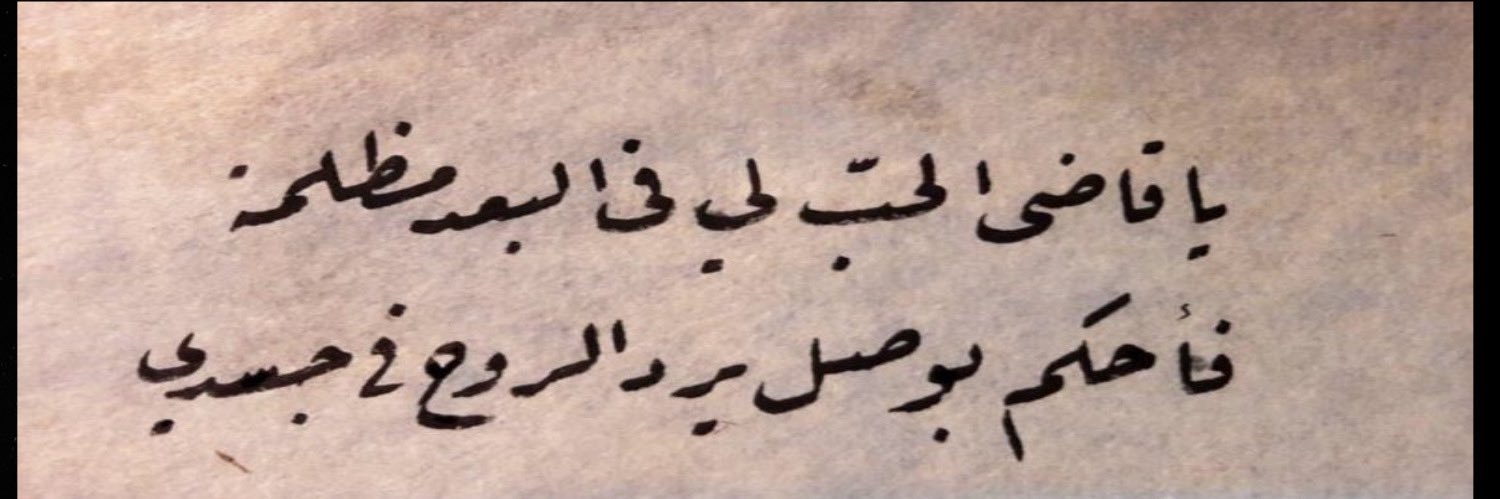 يا قاضى الحبّ لي فى البعد مظلمة
فأحكم بوصل يرد الروح في جسدي